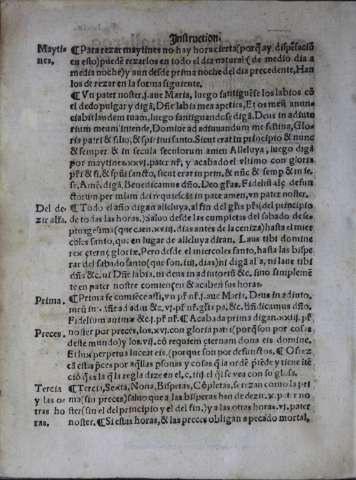 Instruction.
Maytines. ¶ Para rezar maytines no hay hora cierta (porq̃ ay dispẽsaciõ
en esto) puedẽ rezarlos en todo el dia natural (de medio dia a
media noche) y aun desde prima noche del dia precedente, Han
los de rezar en la forma siguiente.
¶ Vn pater noster, j. aue Maria, luego sanctiguẽse los labios cõ
el dedo pulgar y digã, Dñe labia mea aperies, Et os meũ annunciabit
laudem tuam, luego sanctiguandose digã, Deus in adiutorium
meum intende, Domine ad adiuuandum me festina, Gloria
patri & filio, & spiritui sancto. Sicut erat in principio & nunc
& semper & in secula seculorum amen Alleluya, luego digã
por maytines xxvj. pater nr̃, y acabado el vltimo con gloria
pr̃i & fi, & spũi sancto, sicut erat in prin, & nũc & semp & in se-
Amẽ, digã, Benedicamus dño. Deo gr̃as. Fideliũ aĩe defunctorum
per misericordiã dei requiescãt in pace amen, vn pater noster.
Del dezir alla. ¶ Todo el año digan alleluya, al fin del gl̃ia pr̃i (del principio
de todas las horas) Saluo desde las completas del sabado de septuagesima
(que caen xxiij. dias antes de la ceniza) hasta el miercoles
sancto, que en lugar de alleluya diran. Laus tibi domine
rex eterne glorie, Pero desde el miercoles sancto, hasta las bisperas
del sabado sancto (que son, iiij, dias) ni digã al'a, ni laus tibi
dñi &c. ni, Dñe labia, ni deus in adiutoriũ &c, sino simplemẽte
en pater noster comiencen & acaben sus horas.
Prima. ¶ Prima se comiẽce assi, vn pr̃ nr̃. j. aue Maria, Deus in adiuto,
meũ in. Dñe ad adiu &c, gl̃ia pa, &c. bñdicamus dño.
Fidelium anime &c. j. pr̃ nr̃. ¶ Acabada prima digan. xxij. pr̃
Preces. noster por preces, los. xvj. con gloria patri (porq̃ son por cosas
deste mundo) y los. vij. cõ requiem eternam dona eis domine.
Et lux perpetua luceat eis, (por que son por defunctos.
Tercia y las otras horas ¶ Tercia, Sexta, Nona, Bisperas, Cõpletas, se rezan como la prima
(sin preces) saluo que a las bisperas han de dezir. x. pater noster
(sin el del principio y el del fin,) y a las otras horas. vj. pater
noster. ¶ Si estas horas, & las preces obligan a pecado mortal,